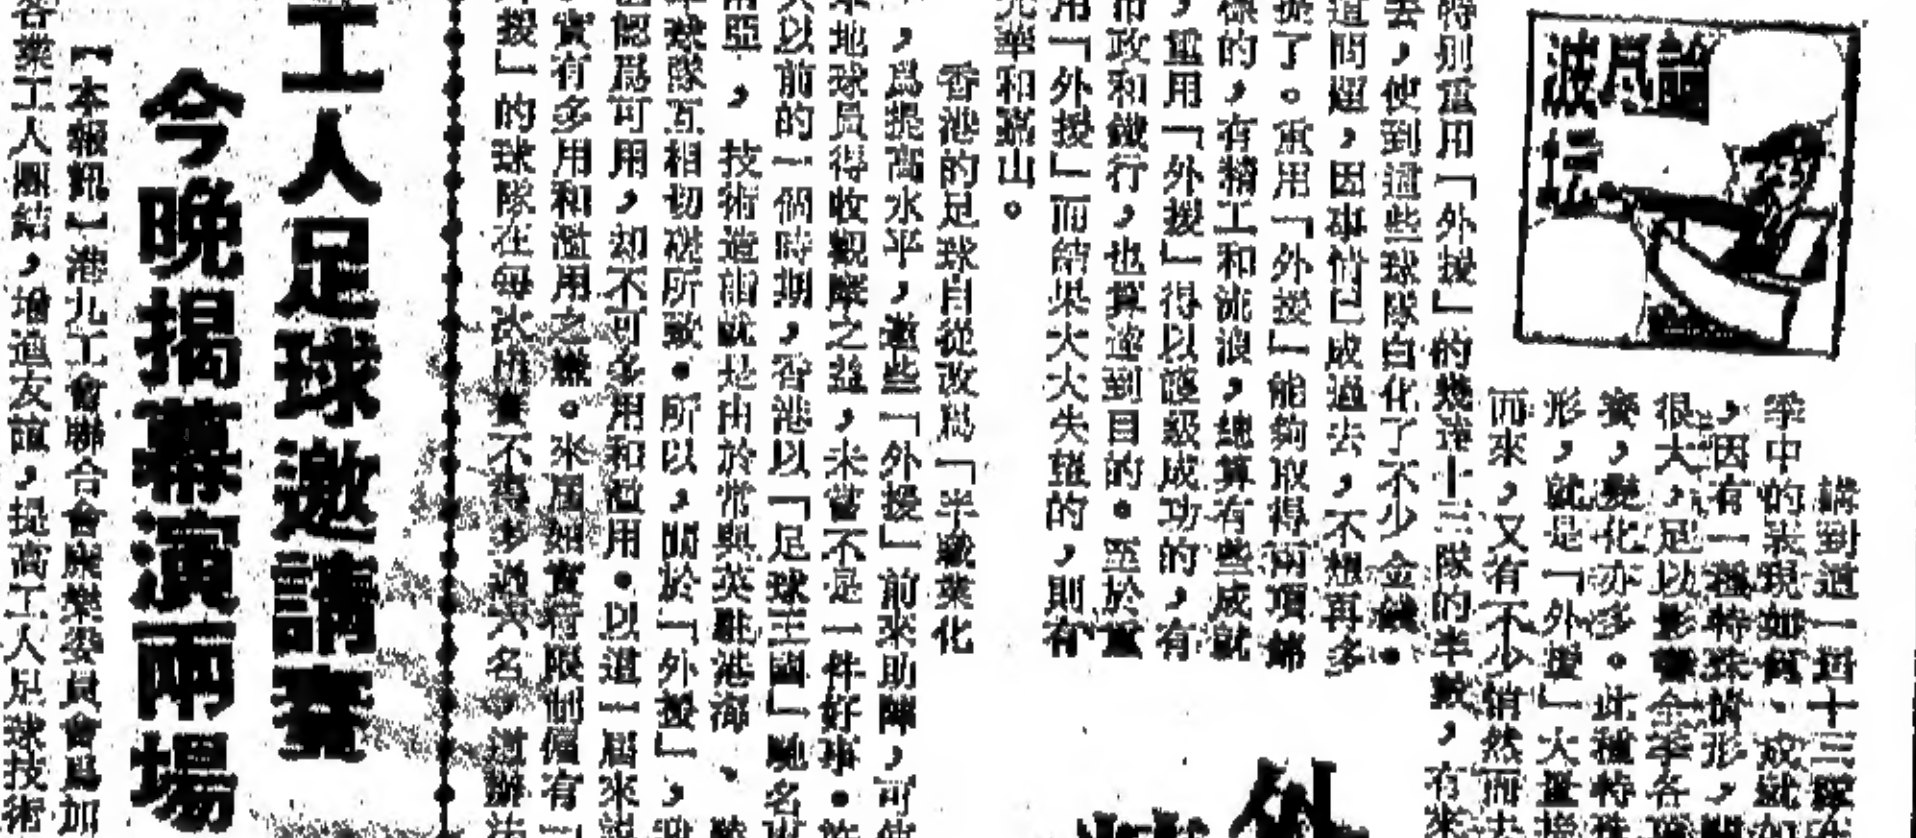 波壇
講到這一屆十三隊在
季中的表現如何、成就如
，因有一種特殊情形，
很大，足以影響全季各
賽，變化亦多。此種特殊
形，就是「外援」大量
而來，又有不少悄然而去
特別重用「外援」的幾達十三隊的半數，有來
去，使到這些球隊白化了不少金錢。
這問題，因事情已成過去，不想再多
提了。重用「外援」能夠取得兩項錦
標的，有精工和流浪，總算有些成就
，重用「外援」得以護級成功的，有
市政和鐵行，也算達到目的。至於重
用「外援」而結果大大失望的，則有
元華和
山。
香港的足球自從改爲「半職業化
，爲提高水平，邀些「外援」前來助陣，可
地球員得收觀摩之益，未嘗不是一件好事。
以前的一個時期，香港以「足球王國」馳名
南亞，技術造詣就是由於常與英駐港海、陸
球隊互相切磋所致。所以，關於「外援」，
認爲可用，却不可多用和濫用。以這一屆來說
實有多用和濫用之嫌。來屆如實行限制僅有
援」的球隊在每次
賽不得多過
名，辦法
外
工人足球邀請賽
今晚揭幕演兩場
【本報訊】港九工會聯合會康樂委員會爲加
各業工人團結，增進友誼，提高工人足球技術